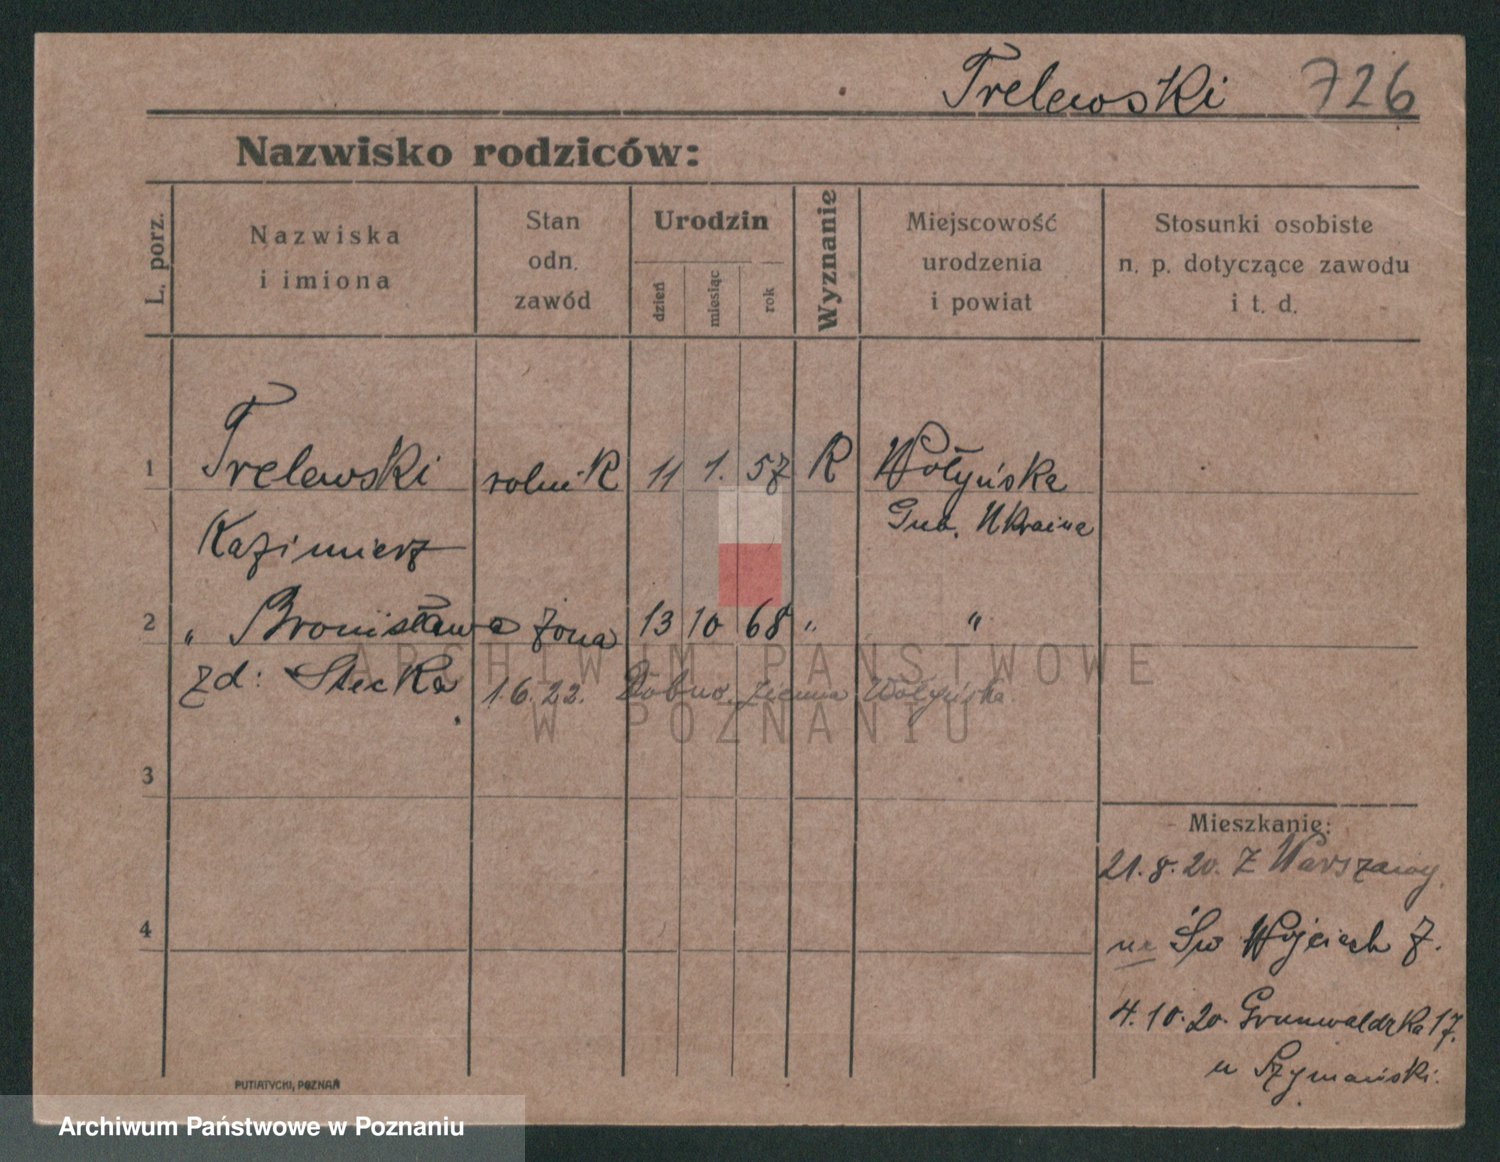 Trelewski 726
Nazwisko rodziców:
L. porz.
Nazwiska
i imiona
Stan
odn.
zawód
Urodzin
dzień
miesiąc
rok
Wyznanie
Miejscowość
urodzenia
i powiat
Stosunki osobiste
n. p. dotyczące zawodu
i t. d.
1 Trelewski rolnik 11 1. 57 R Wołyńska
Gub. Ukraina
Kazimierz
2 " Bronisława żona 13 10 68 " "
zd: Stecka 1.6.22. Dobno, ziemia Wołyńska.
3
Mieszkanie:
21.8.20. Z Warszawy.
4
Św Wojciech 7.
4.10.20. Grunwaldzka 17.
u Szymański.
PUTIATYCKI, POZNAŃ
ARCHIWUM PAŃSTWOWE
W POZNANIU
Archiwum Państwowe w Poznaniu